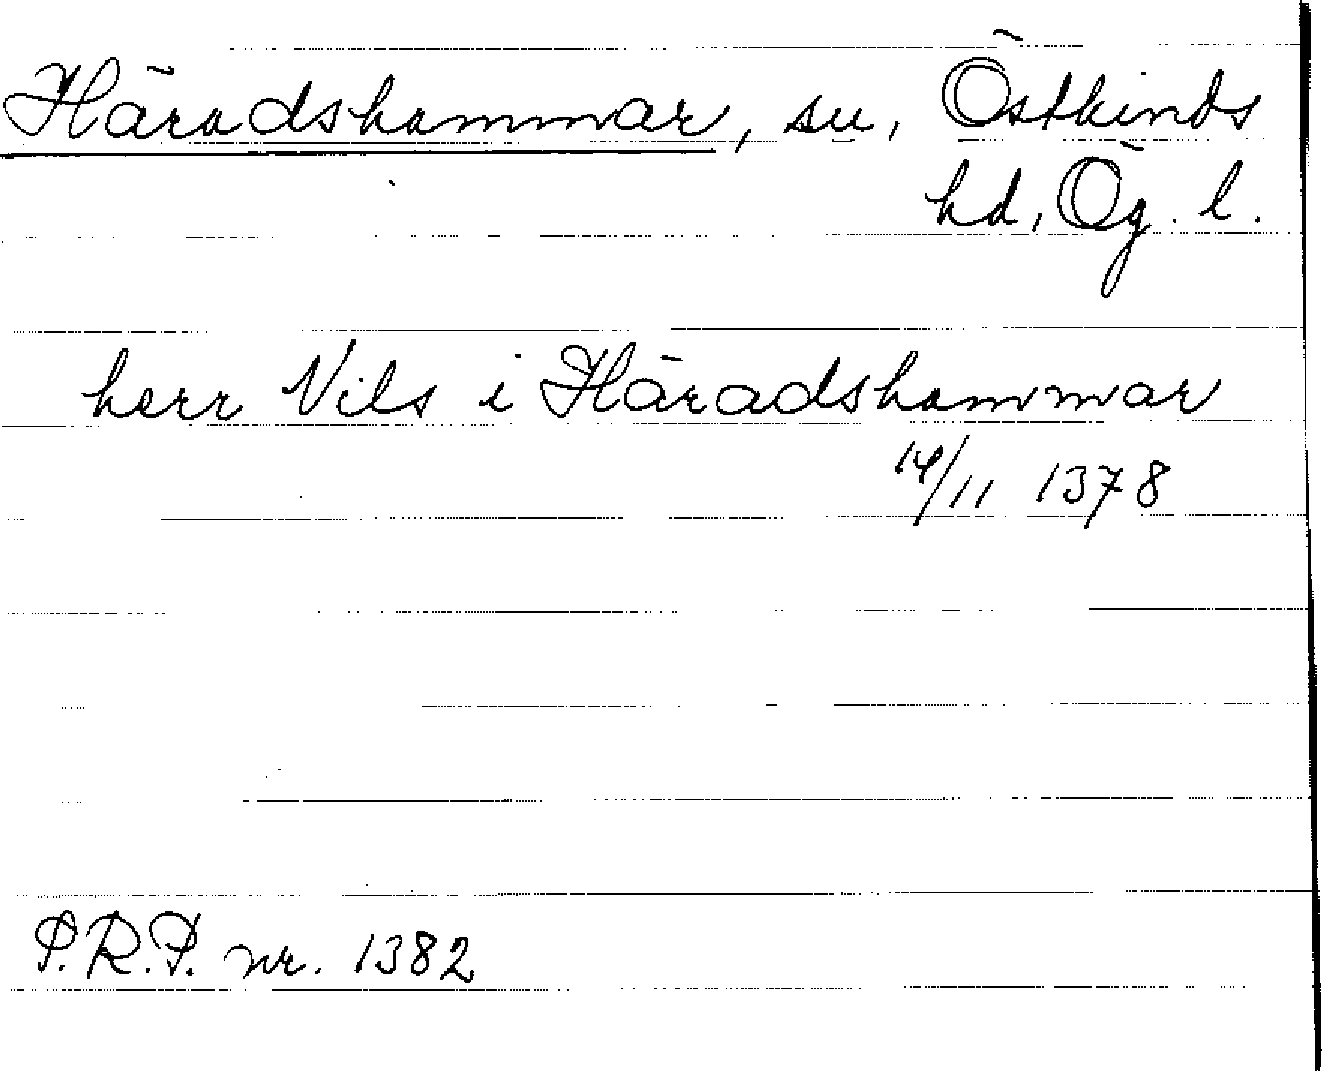 Häradshammar, sn, Östkinds
hd, Ög. l.
herr Nils i Häradshammar
14/11 1378
P.R.P. nr. 1382